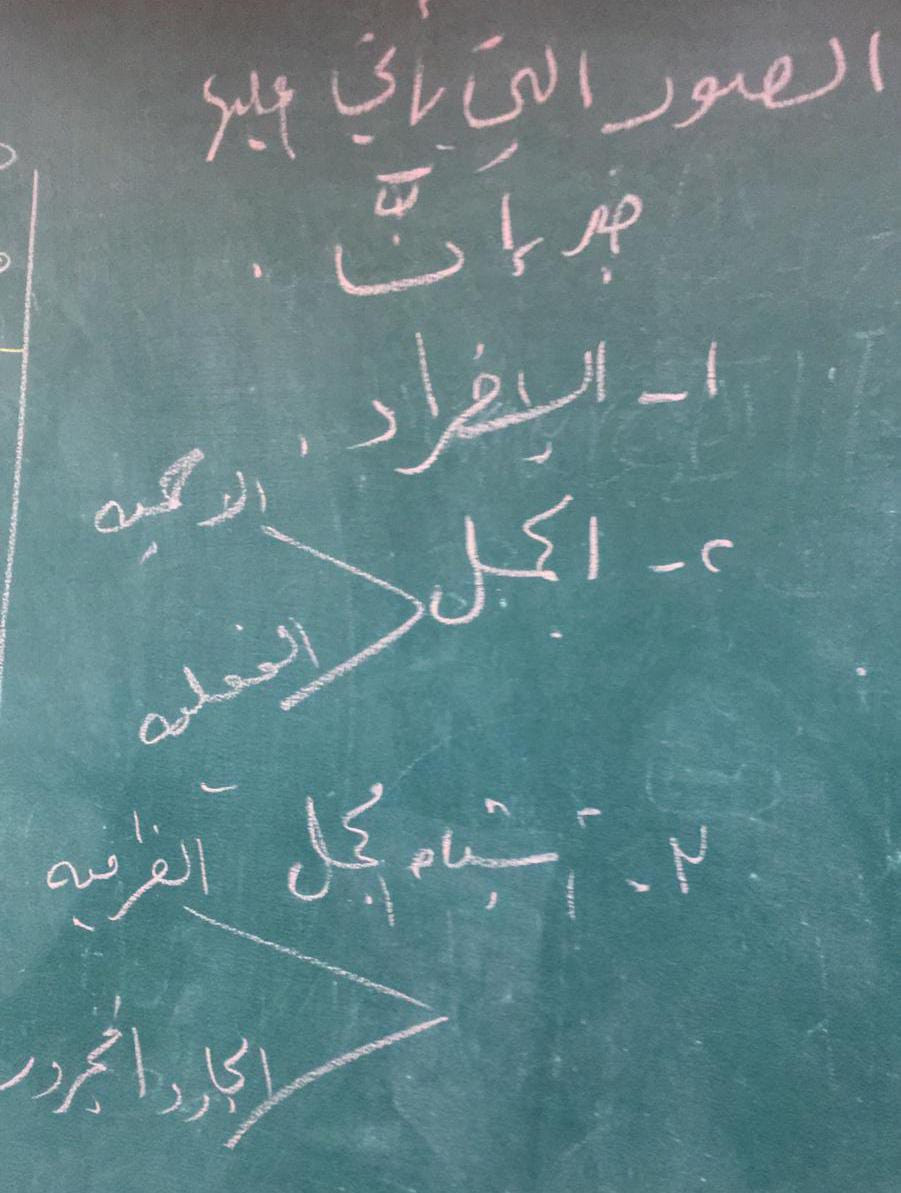 الصور التي يأتي عليها
خبر إنّ
١- الإفراد
٢- الجمل
الاسمية
الفعلية
٣- أشباه جمل
الظرفية
الجار والمجرور